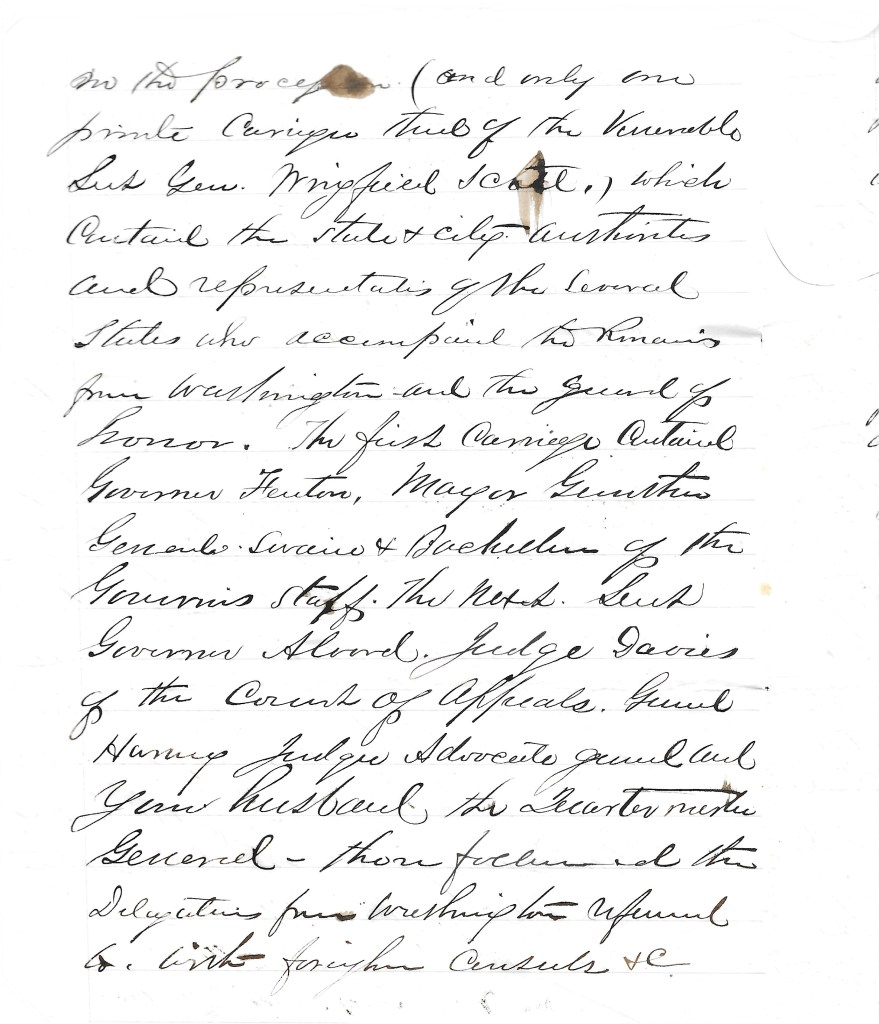 in the procession (and only one
private Cariage that of the Venerable
Leut Gen. Wingfield Scott,) which
Contained the state & city authorities
and representatives of the several
States who accompanied the Remains
from Washington and the guard of
honor. The first Carriage Contained
Governor Fenton, Mayor Gunther
Generals Swain & Bachellur of the
Governors staff. The Next. Leut
Governor Alvord. Judge Davies
of the Court of Appeals. Genrel
Harvey Judge Advocate genrel and
Your husband the Quartermaster
General - then followed the
Delegations from Washington referred
to. with foreighn Consuls &C